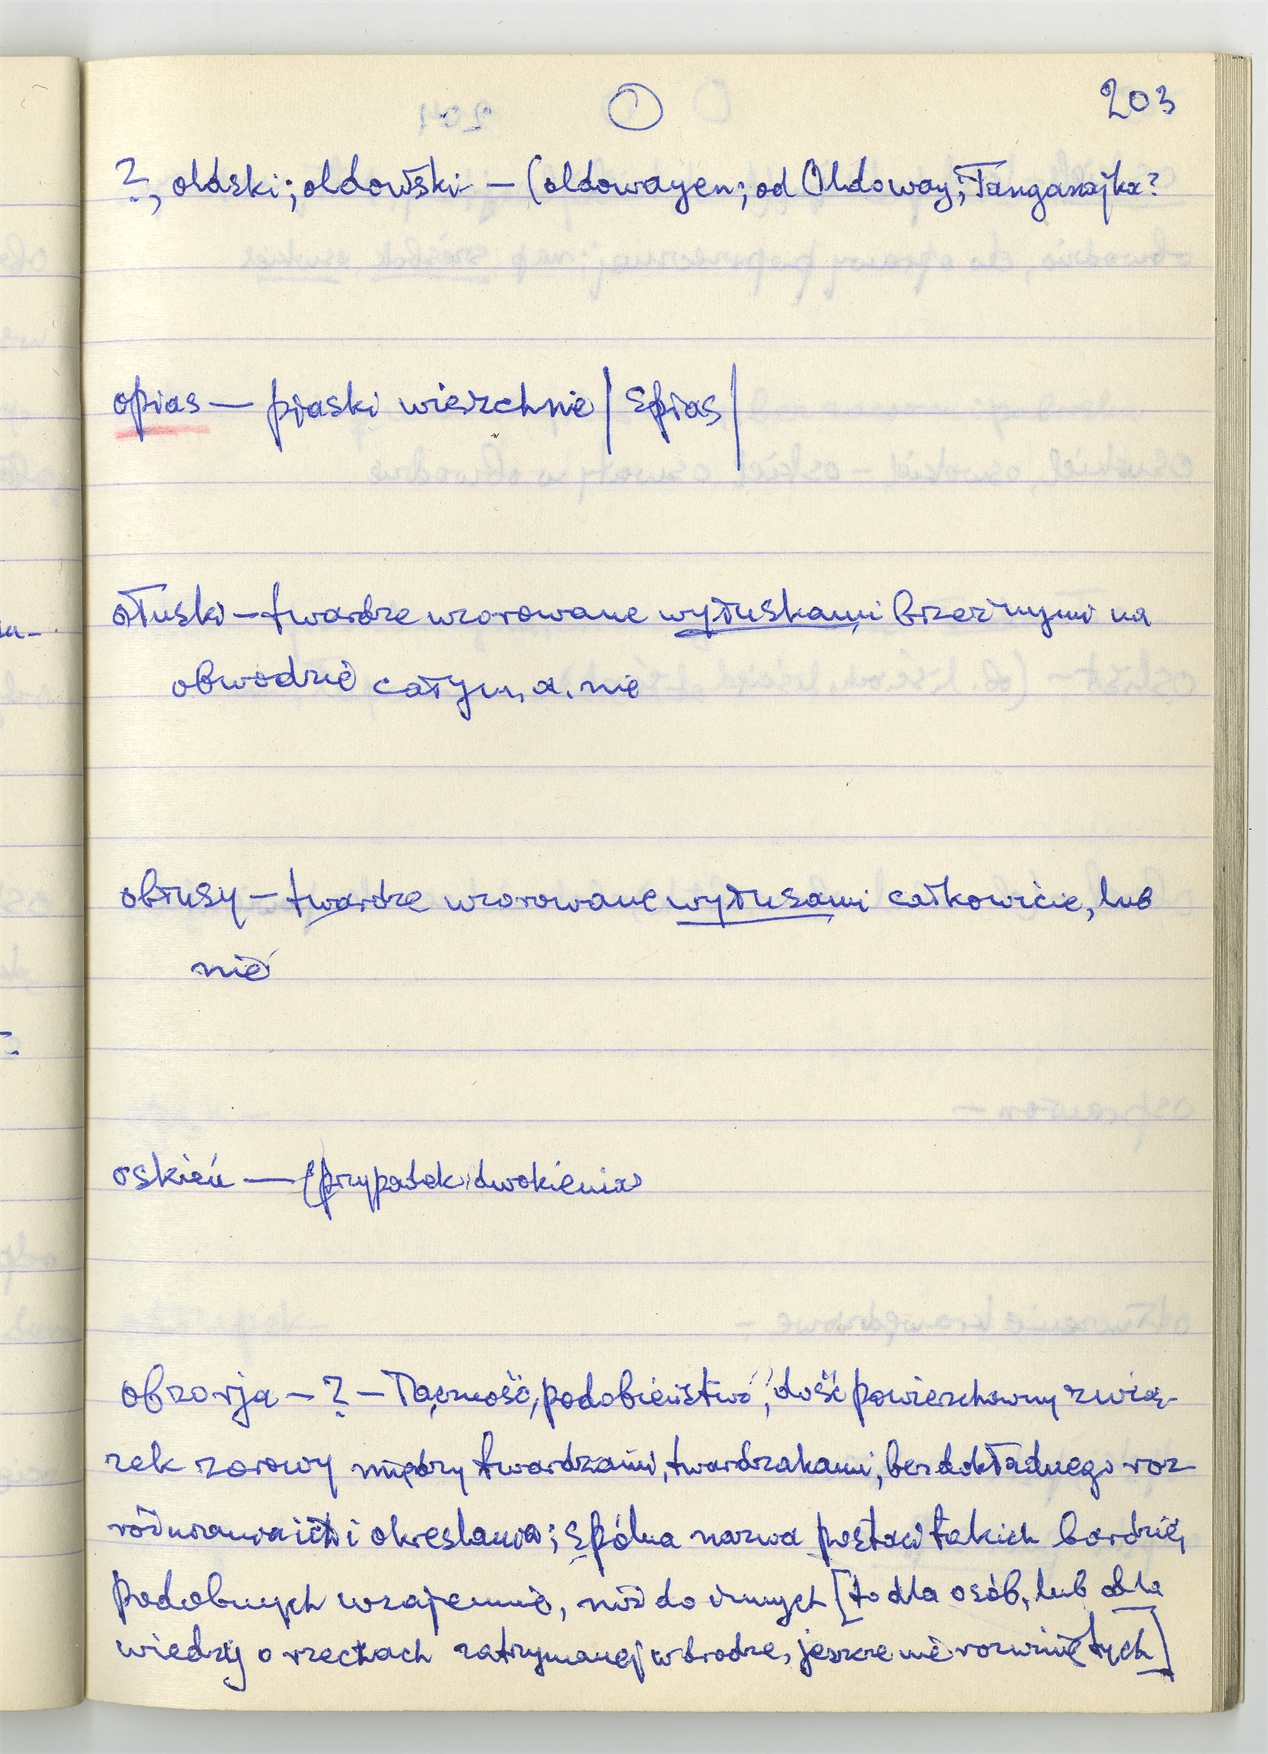 O 203
?, oldski; oldowski — (oldowayen; od Oldoway; Tanganajka?
opias — pjaski wierzchnie | Spias |
ołuski — twardze wzorowane wyłuskami brzeżnymi na
obwodzie całym, a. nie
obłusy — twardze wzorowane wyłusami całkowicie, lub
nie
oskień — (przypadek dwokienia)
obzorja — ? — łączność, podobieństwo, dość powierzchowny zwią-
zek zorowy między twardzami, twardzakami, bez dokładnego roz-
różniania ich i okreslania; spólna nazwa postaci takich bardzie,
podobnych wzajemnie, niż do innych [to dla osób, lub dla
wiedzy o rzeczach zatrzymanej w drodze, jeszcze nie rozwiniętych]